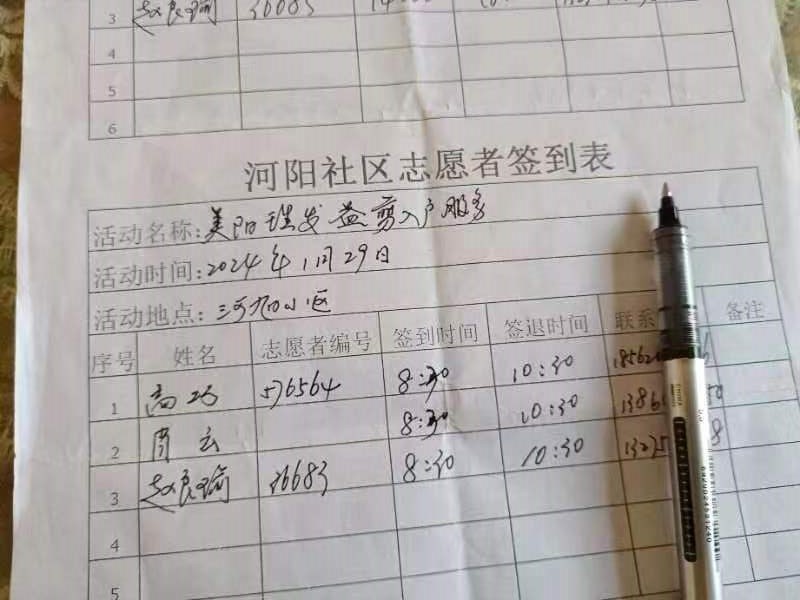 3 赵良瑜 36683
4
5
6
河阳社区志愿者签到表
活动名称: 美阳理发益剪入户服务
活动时间: 2024年1月29日
活动地点: 小区
序号 姓名 志愿者编号 签到时间 签退时间 联系 备注
1 高巧 576564 8:30 10:30
2 周云 8:30 10:30
3 赵良瑜 36683 8:30 10:30
4
5